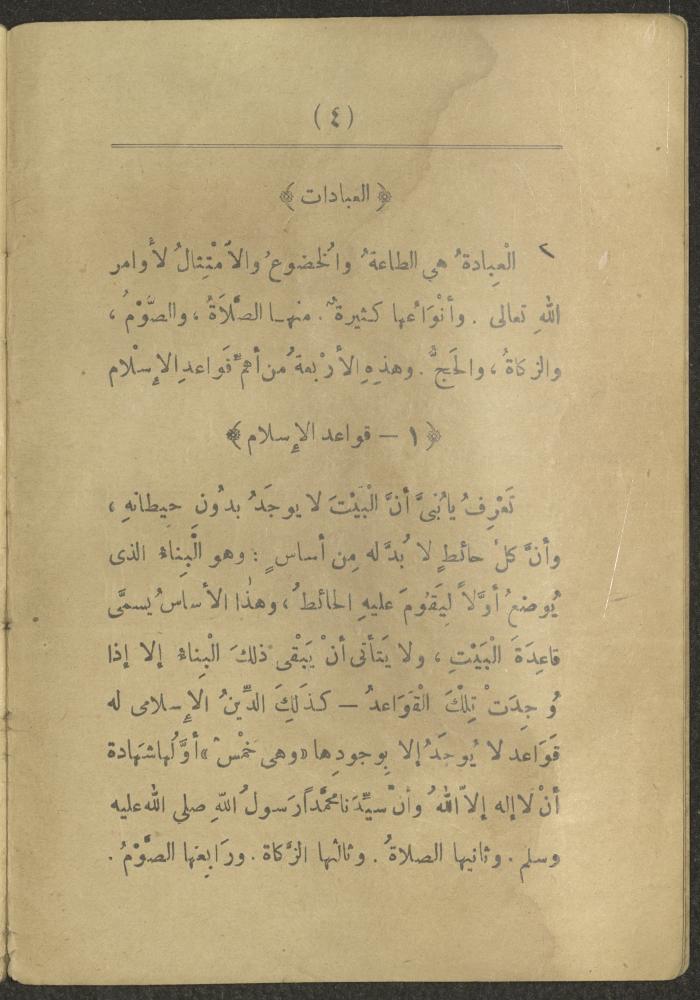 ( ٤ )
﴿ العبادات ﴾
٢ الْعِبادةُ هي الطاعةُ والْخضوعُ والاَمْتِثالُ لأَوامر
اللهِ تعالى . وأنْوَاعُها كثيرةٌ . منهـا الصَّلاَةُ ، والصَّوْمُ ،
والزكاةُ ، والحَجُّ . وهذِهِ الأَرْبعةُ من أهمِّ قَواعدِ الإِسْلام
﴿ ١ — قواعد الإِسلام ﴾
تَعْرِفُ يا بُنىَّ أَنَّ الْبَيْتَ لا يوجَدُ بدُونِ حيطانهِ ،
وأنَّ كلَّ حائطٍ لا بُدَّ له مِن أساسٍ : وهو الْبِناءُ الذى
يُوضعُ أَوَّلاً لِيَقُومَ عليهِ الحائطُ ، وهذَا الأَساسُ يسمَّى
قاعِدَةَ الْبَيْتِ ، ولا يَتأتى أنْ يَبْقى ذلكَ الْبِناءُ إلا إذا
وُجِدَتْ تِلْكَ الْقَوَاعدُ — كذلِكَ الدِّينُ الإِسلامى له
قَوَاعد لا يُوجَدُ إلا بِوجودِها «وهى خَمْسٌ» أوَّلُها شهَادة
أنْ لا إله إلاَّ اللهُ وأنَّ سيِّدَنا محمَّداً رَسولُ اللهِ صلى الله عليه
وسلم . وثانيها الصلاةُ . وثالثها الزَّكاة . ورَابِعُها الصَّوْمُ .